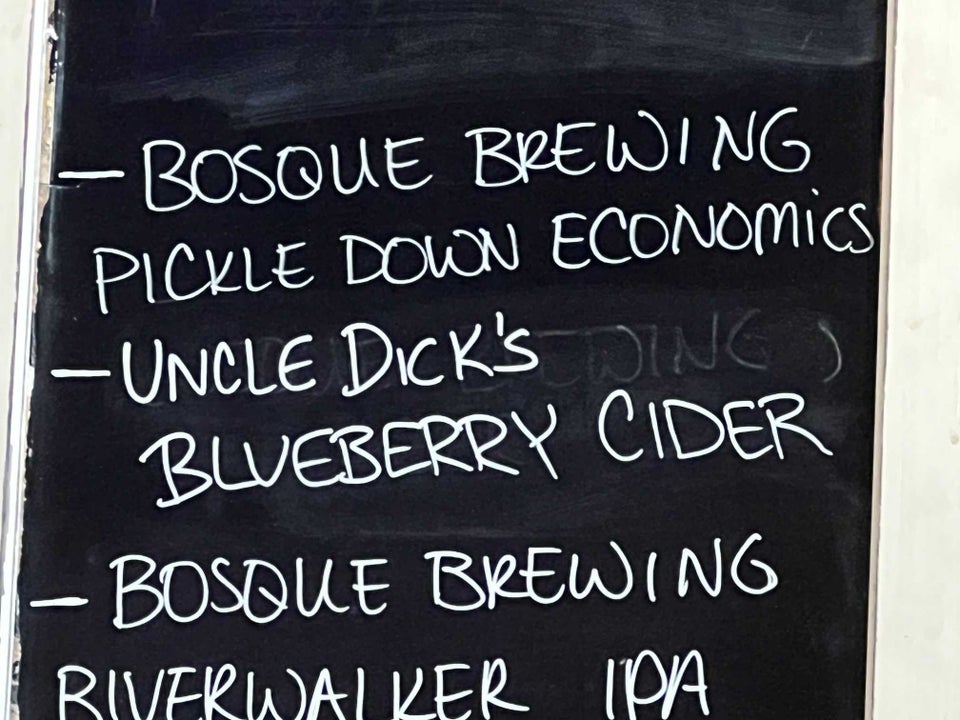 - BOSQUE BREWING
PICKLE DOWN ECONOMICS
- UNCLE DICK'S
BLUEBERRY CIDER
- BOSQUE BREWING
RIVERWALKER IPA